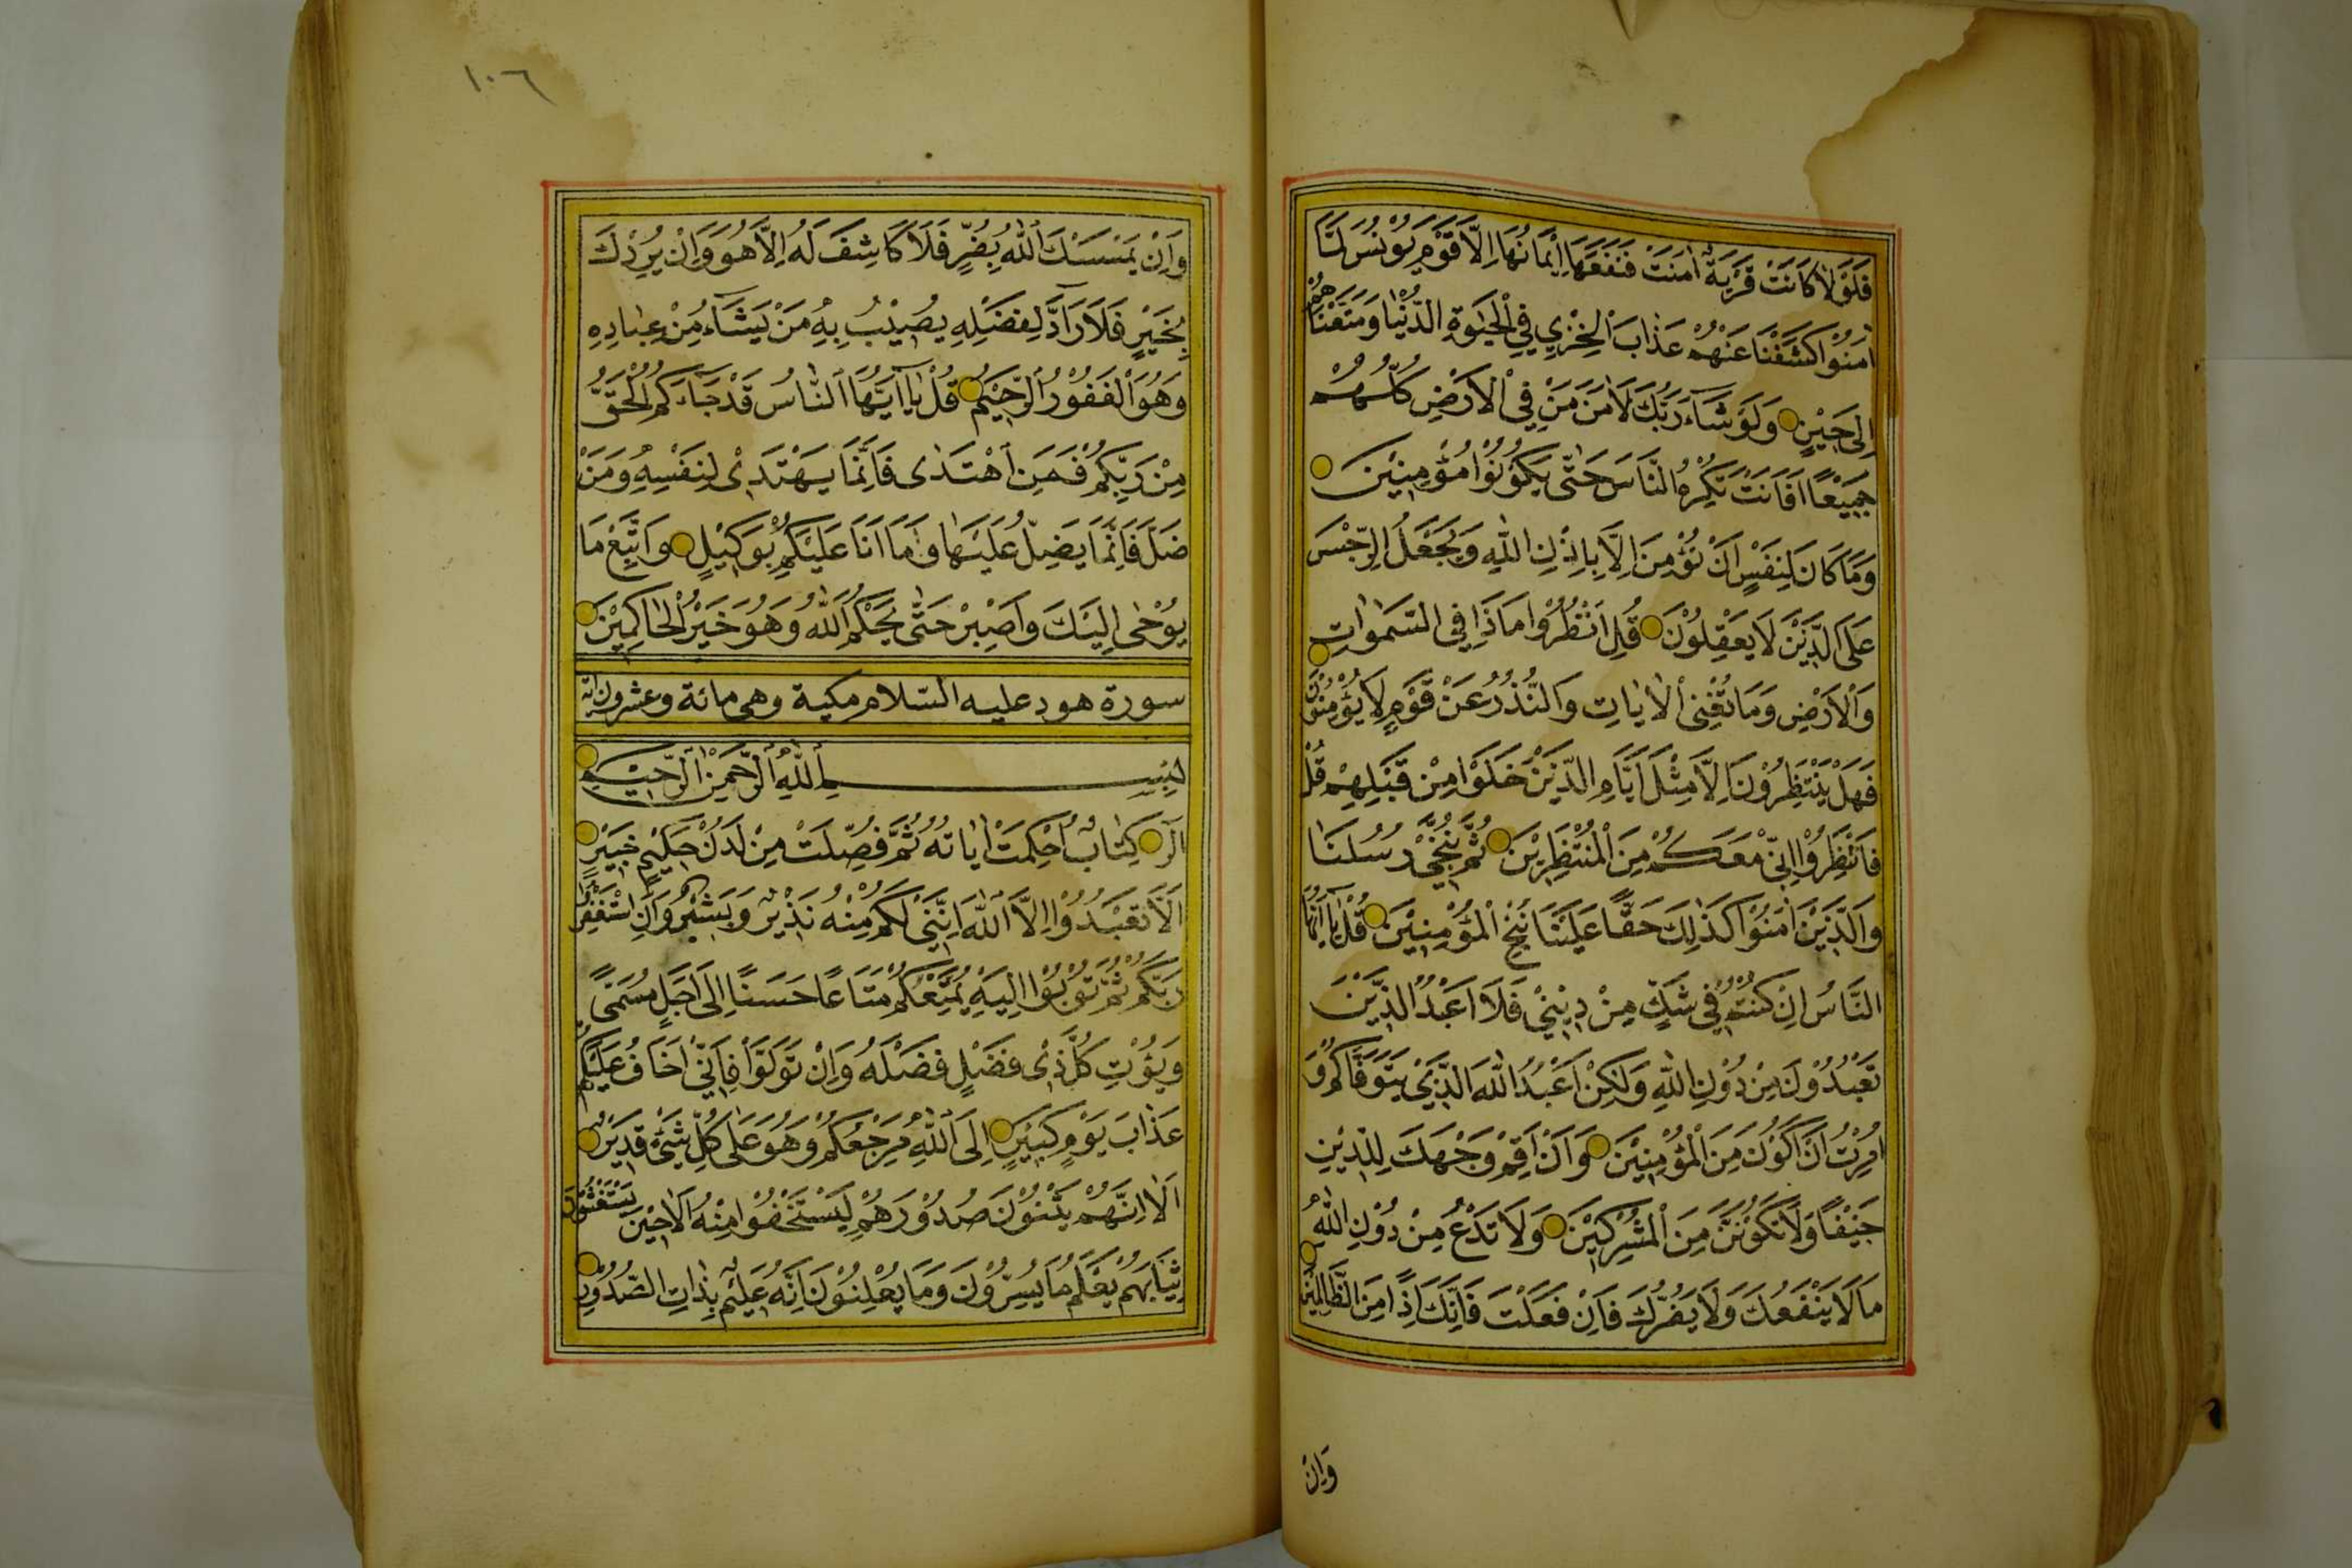 فَلَوْلَا كَانَتْ قَرْيَةٌ اٰمَنَتْ فَنَفَعَهَا اِيْمَانُهَا اِلَّا قَوْمَ يُوْنُسَ لَمَّا
اٰمَنُوْا كَشَفْنَا عَنْهُمْ عَذَابَ الْخِزْيِ فِي الْحَيٰوةِ الدُّنْيَا وَمَتَّعْنَاهُمْ
اِلٰى حِيْنٍ وَلَوْ شَآءَ رَبُّكَ لَاٰمَنَ مَنْ فِي الْاَرْضِ كُلُّهُمْ
جَمِيْعًا اَفَاَنْتَ تُكْرِهُ النَّاسَ حَتّٰى يَكُوْنُوْا مُؤْمِنِيْنَ
وَمَا كَانَ لِنَفْسٍ اَنْ تُؤْمِنَ اِلَّا بِاِذْنِ اللّٰهِ وَيَجْعَلُ الرِّجْسَ
عَلَى الَّذِيْنَ لَا يَعْقِلُوْنَ قُلِ انْظُرُوْا مَاذَا فِي السَّمٰوَاتِ
وَالْاَرْضِ وَمَا تُغْنِي الْاٰيَاتُ وَالنُّذُرُ عَنْ قَوْمٍ لَا يُؤْمِنُوْنَ
فَهَلْ يَنْتَظِرُوْنَ اِلَّا مِثْلَ اَيَّامِ الَّذِيْنَ خَلَوْا مِنْ قَبْلِهِمْ قُلْ
فَانْتَظِرُوْا اِنِّيْ مَعَكُمْ مِنَ الْمُنْتَظِرِيْنَ ثُمَّ نُنَجِّيْ رُسُلَنَا
وَالَّذِيْنَ اٰمَنُوْا كَذٰلِكَ حَقًّا عَلَيْنَا نُنْجِ الْمُؤْمِنِيْنَ قُلْ يَآ اَيُّهَا
النَّاسُ اِنْ كُنْتُمْ فِيْ شَكٍّ مِنْ دِيْنِيْ فَلَا اَعْبُدُ الَّذِيْنَ
تَعْبُدُوْنَ مِنْ دُوْنِ اللّٰهِ وَلٰكِنْ اَعْبُدُ اللّٰهَ الَّذِيْ يَتَوَفَّاكُمْ وَ
اُمِرْتُ اَنْ اَكُوْنَ مِنَ الْمُؤْمِنِيْنَ وَاَنْ اَقِمْ وَجْهَكَ لِلدِّيْنِ
حَنِيْفًا وَلَا تَكُوْنَنَّ مِنَ الْمُشْرِكِيْنَ وَلَا تَدْعُ مِنْ دُوْنِ اللّٰهِ
مَا لَا يَنْفَعُكَ وَلَا يَضُرُّكَ فَاِنْ فَعَلْتَ فَاِنَّكَ اِذًا مِنَ الظَّالِمِيْنَ
وَاِنْ
١٠٦
وَاِنْ يَمْسَسْكَ اللّٰهُ بِضُرٍّ فَلَا كَاشِفَ لَهُ اِلَّا هُوَ وَاِنْ يُرِدْكَ
بِخَيْرٍ فَلَا رَآدَّ لِفَضْلِهِ يُصِيْبُ بِهِ مَنْ يَشَآءُ مِنْ عِبَادِهِ
وَهُوَ الْغَفُوْرُ الرَّحِيْمُ قُلْ يَآ اَيُّهَا النَّاسُ قَدْ جَآءَكُمُ الْحَقُّ
مِنْ رَبِّكُمْ فَمَنِ اهْتَدٰى فَاِنَّمَا يَهْتَدِيْ لِنَفْسِهِ وَمَنْ
ضَلَّ فَاِنَّمَا يَضِلُّ عَلَيْهَا وَمَا اَنَا عَلَيْكُمْ بِوَكِيْلٍ وَاتَّبِعْ مَا
يُوْحٰى اِلَيْكَ وَاصْبِرْ حَتّٰى يَحْكُمَ اللّٰهُ وَهُوَ خَيْرُ الْحَاكِمِيْنَ
سورة هود عليه السّلام مكية وهى مائة وعشرون اية
بِسْمِ اللّٰهِ الرَّحْمٰنِ الرَّحِيْمِ
الٓرٰ كِتَابٌ اُحْكِمَتْ اٰيَاتُهُ ثُمَّ فُصِّلَتْ مِنْ لَدُنْ حَكِيْمٍ خَبِيْرٍ
اَلَّا تَعْبُدُوْا اِلَّا اللّٰهَ اِنَّنِيْ لَكُمْ مِنْهُ نَذِيْرٌ وَبَشِيْرٌ وَاَنِ اسْتَغْفِرُوْا
رَبَّكُمْ ثُمَّ تُوْبُوْا اِلَيْهِ يُمَتِّعْكُمْ مَتَاعًا حَسَنًا اِلٰى اَجَلٍ مُسَمًّى
وَيُؤْتِ كُلَّ ذِيْ فَضْلٍ فَضْلَهُ وَاِنْ تَوَلَّوْا فَاِنِّيْ اَخَافُ عَلَيْكُمْ
عَذَابَ يَوْمٍ كَبِيْرٍ اِلَى اللّٰهِ مَرْجِعُكُمْ وَهُوَ عَلٰى كُلِّ شَيْءٍ قَدِيْرٌ
اَلَا اِنَّهُمْ يَثْنُوْنَ صُدُوْرَهُمْ لِيَسْتَخْفُوْا مِنْهُ اَلَا حِيْنَ يَسْتَغْشُوْنَ
ثِيَابَهُمْ يَعْلَمُ مَا يُسِرُّوْنَ وَمَا يُعْلِنُوْنَ اِنَّهُ عَلِيْمٌ بِذَاتِ الصُّدُوْرِ